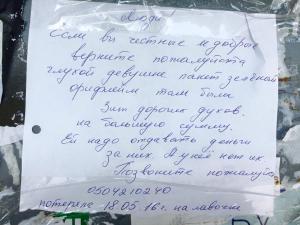 Люди
Если вы честные и добрые
верните пожалуйста
глухой девушке пакет зеленый
орифлейм там были
5шт дорогих духов.
на большую сумму.
Ей надо отдавать деньги
за них. А у неё нет их
Позвоните пожалуйс
0504210240
потеряла 18.05.16г. на лавочке